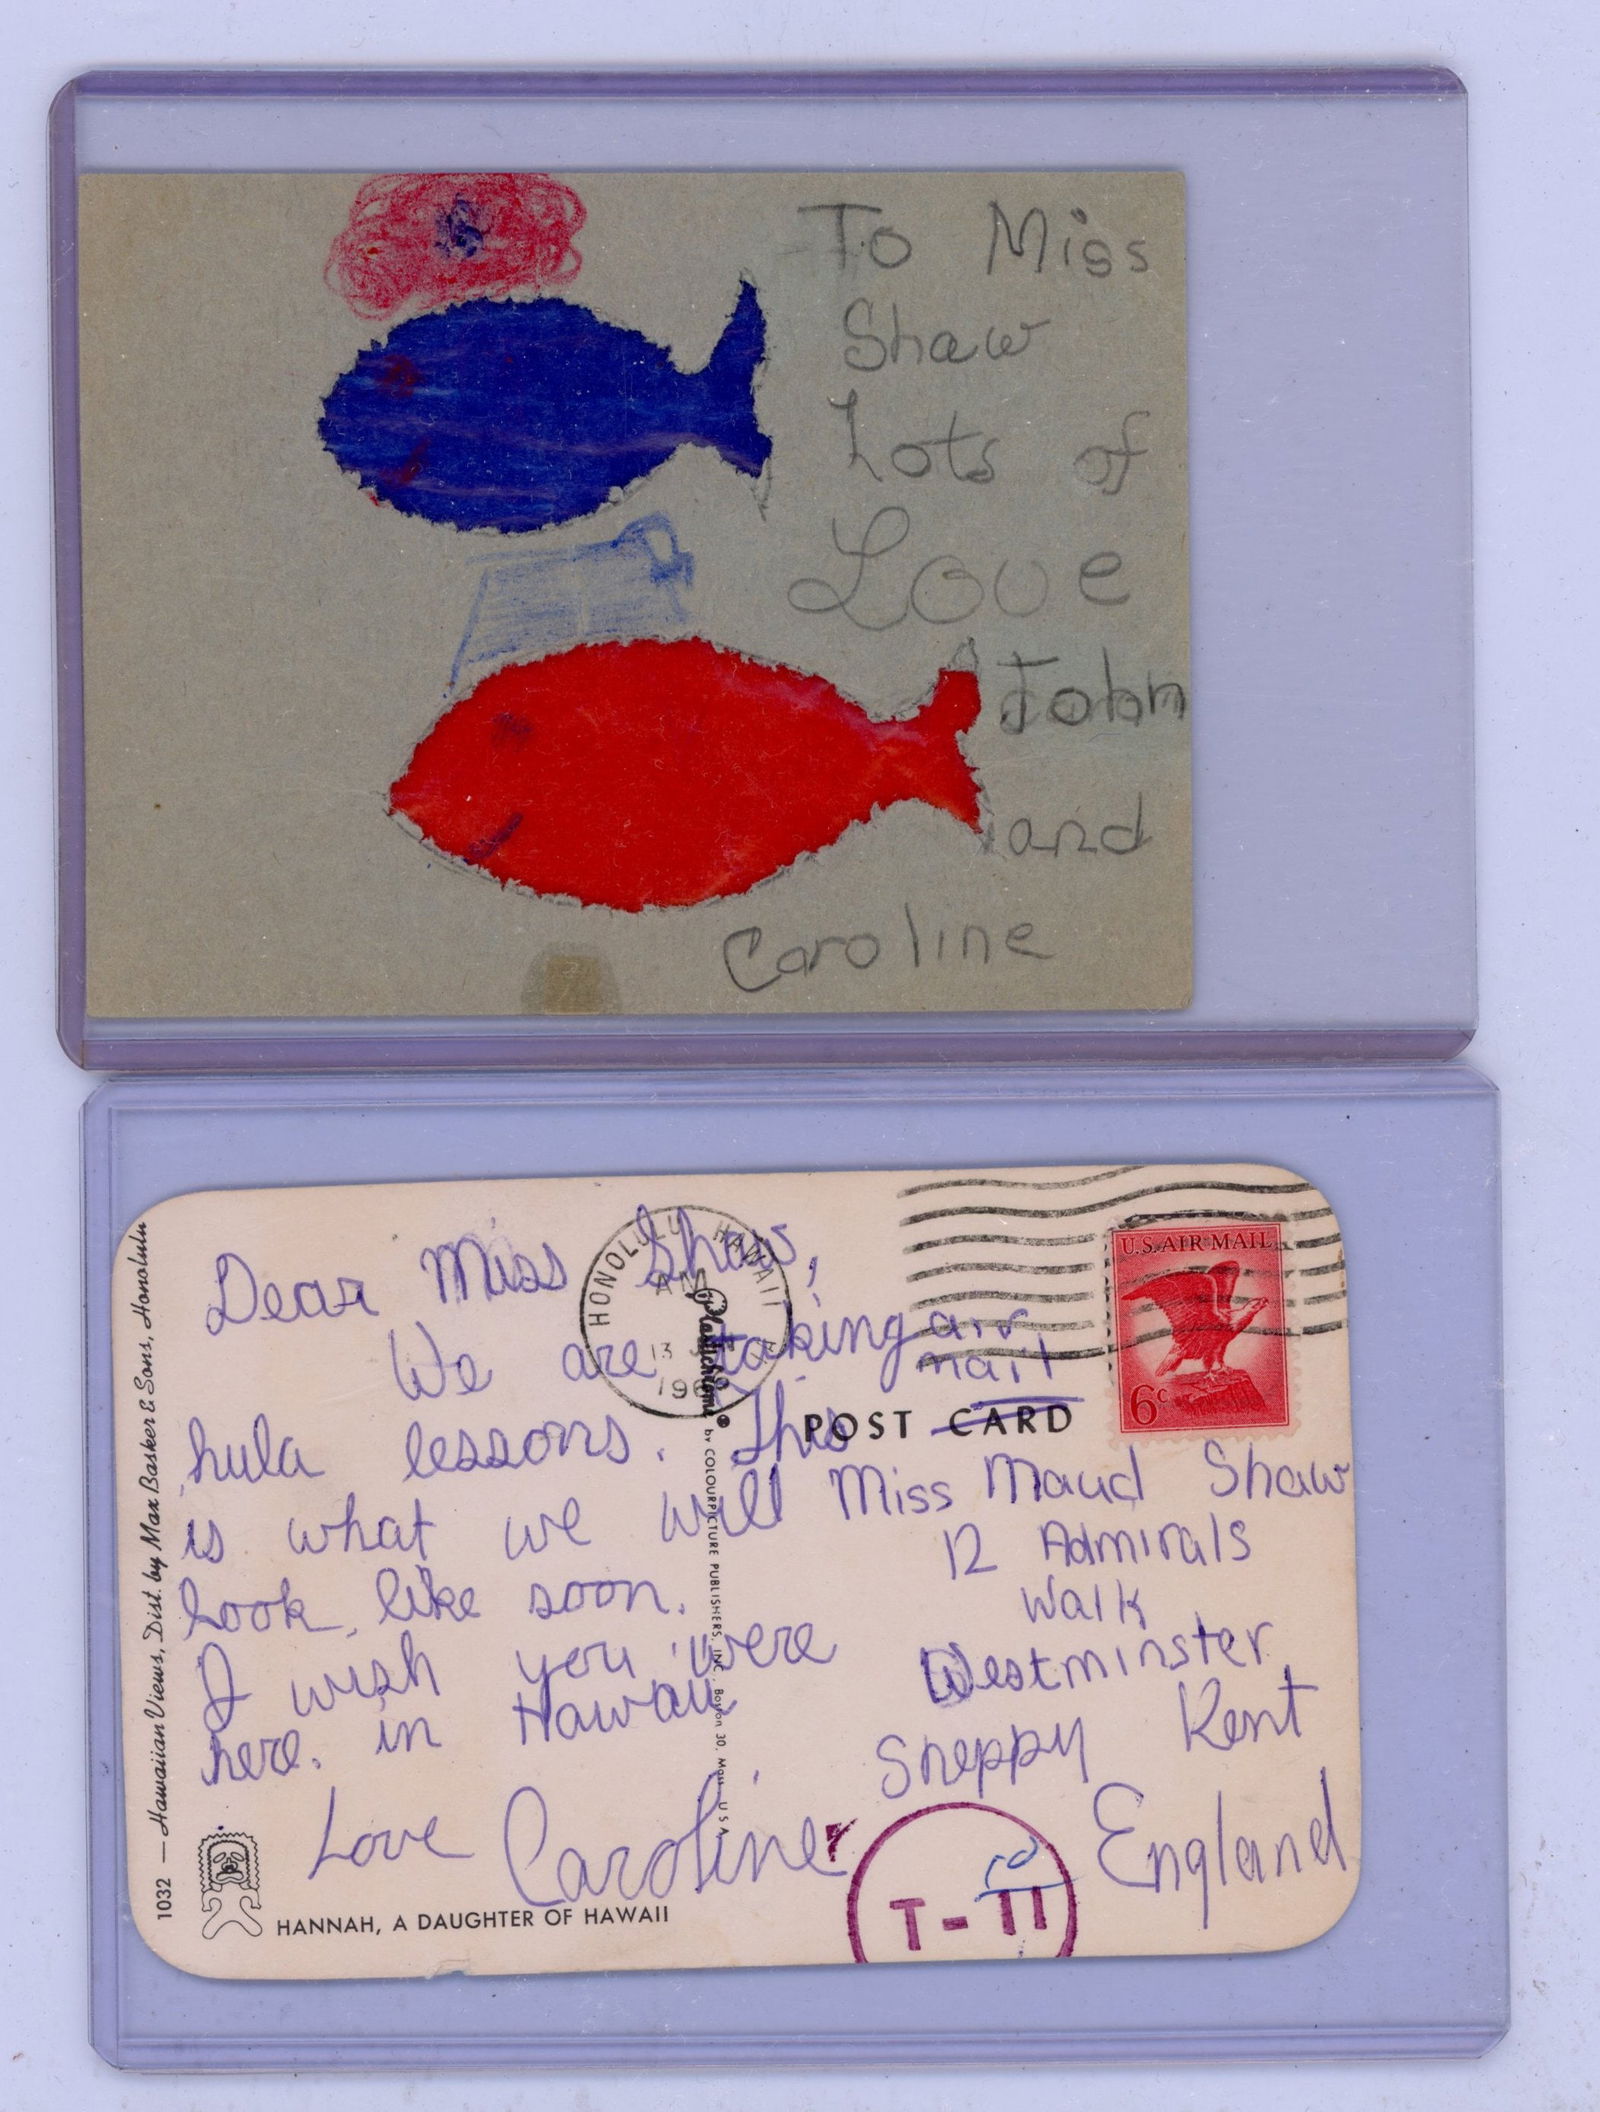 To Miss
Shaw
Lots of
Love
John
and
Caroline
Dear Miss Shaw,
We are taking
hula lessons. This
is what we will
look like soon.
I wish you were
here. in Hawaii
Love Caroline
HONOLULU HAWAII
AM
13
196
Plastichrome®
by COLOURPICTURE PUBLISHERS, INC. Boston 30, Mass. U S A
U.S. AIR MAIL
6c
air
mail
POST CARD
Miss Maud Shaw
12 Admirals
Walk
Westminster
Sheppy Kent
England
T-11
1032 — Hawaiian Views, Dist. by Max Basker & Sons, Honolulu
HANNAH, A DAUGHTER OF HAWAII